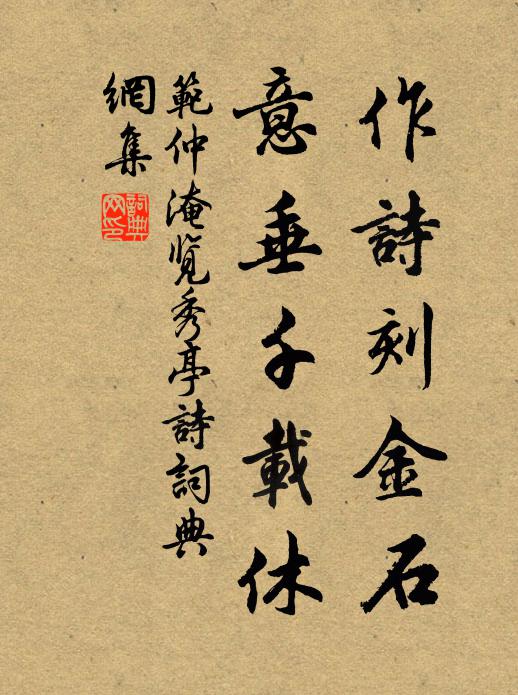 作詩刻金石
意垂千載休
範仲淹覽秀亭詩詞典
網集
詞典网印